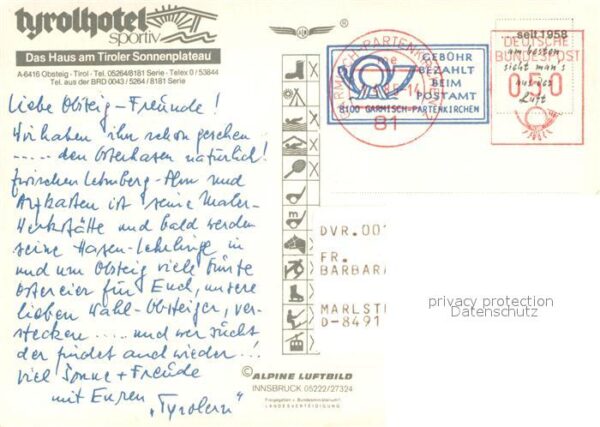 tyrolhotel
sportiv
Das Haus am Tiroler Sonnenplateau
A-6416 Obsteig · Tirol · Tel. 05264/8181 Serie · Telex 0 / 53844
Tel. aus der BRD 0043 / 5264 / 8181 Serie
Liebe Obsteig-Freunde!
Wir haben ihn schon gesehen
..... den Osterhasen natürlich!
Zwischen Lehnberg-Alm und
Arzkasten ist seine Maler-
Werkstätte und bald werden
seine Hasen-Lehrlinge in
und um Obsteig viele bunte
Ostereier für Euch, unsere
lieben Wahl-Obsteiger, ver-
stecken .... und wer sucht
der findet auch wieder...!
Viel Sonne + Freude
mit Euren "Tyrolern"
GARMISCH-PARTENKIRCHEN
81
GEBÜHR
BEZAHLT
BEIM
POSTAMT
8100 GARMISCH-PARTENKIRCHEN
...seit 1958
DEUTSCHE
BUNDESPOST
am besten
sieht man's
aus der
Luft
050
DVR.001
FR.
BARBARA
MARLST
D-8491
privacy protection
Datenschutz
© ALPINE LUFTBILD
INNSBRUCK 05222/27324
Freigegeben v. Bundesministerium f.
LANDESVERTEIDIGUNG